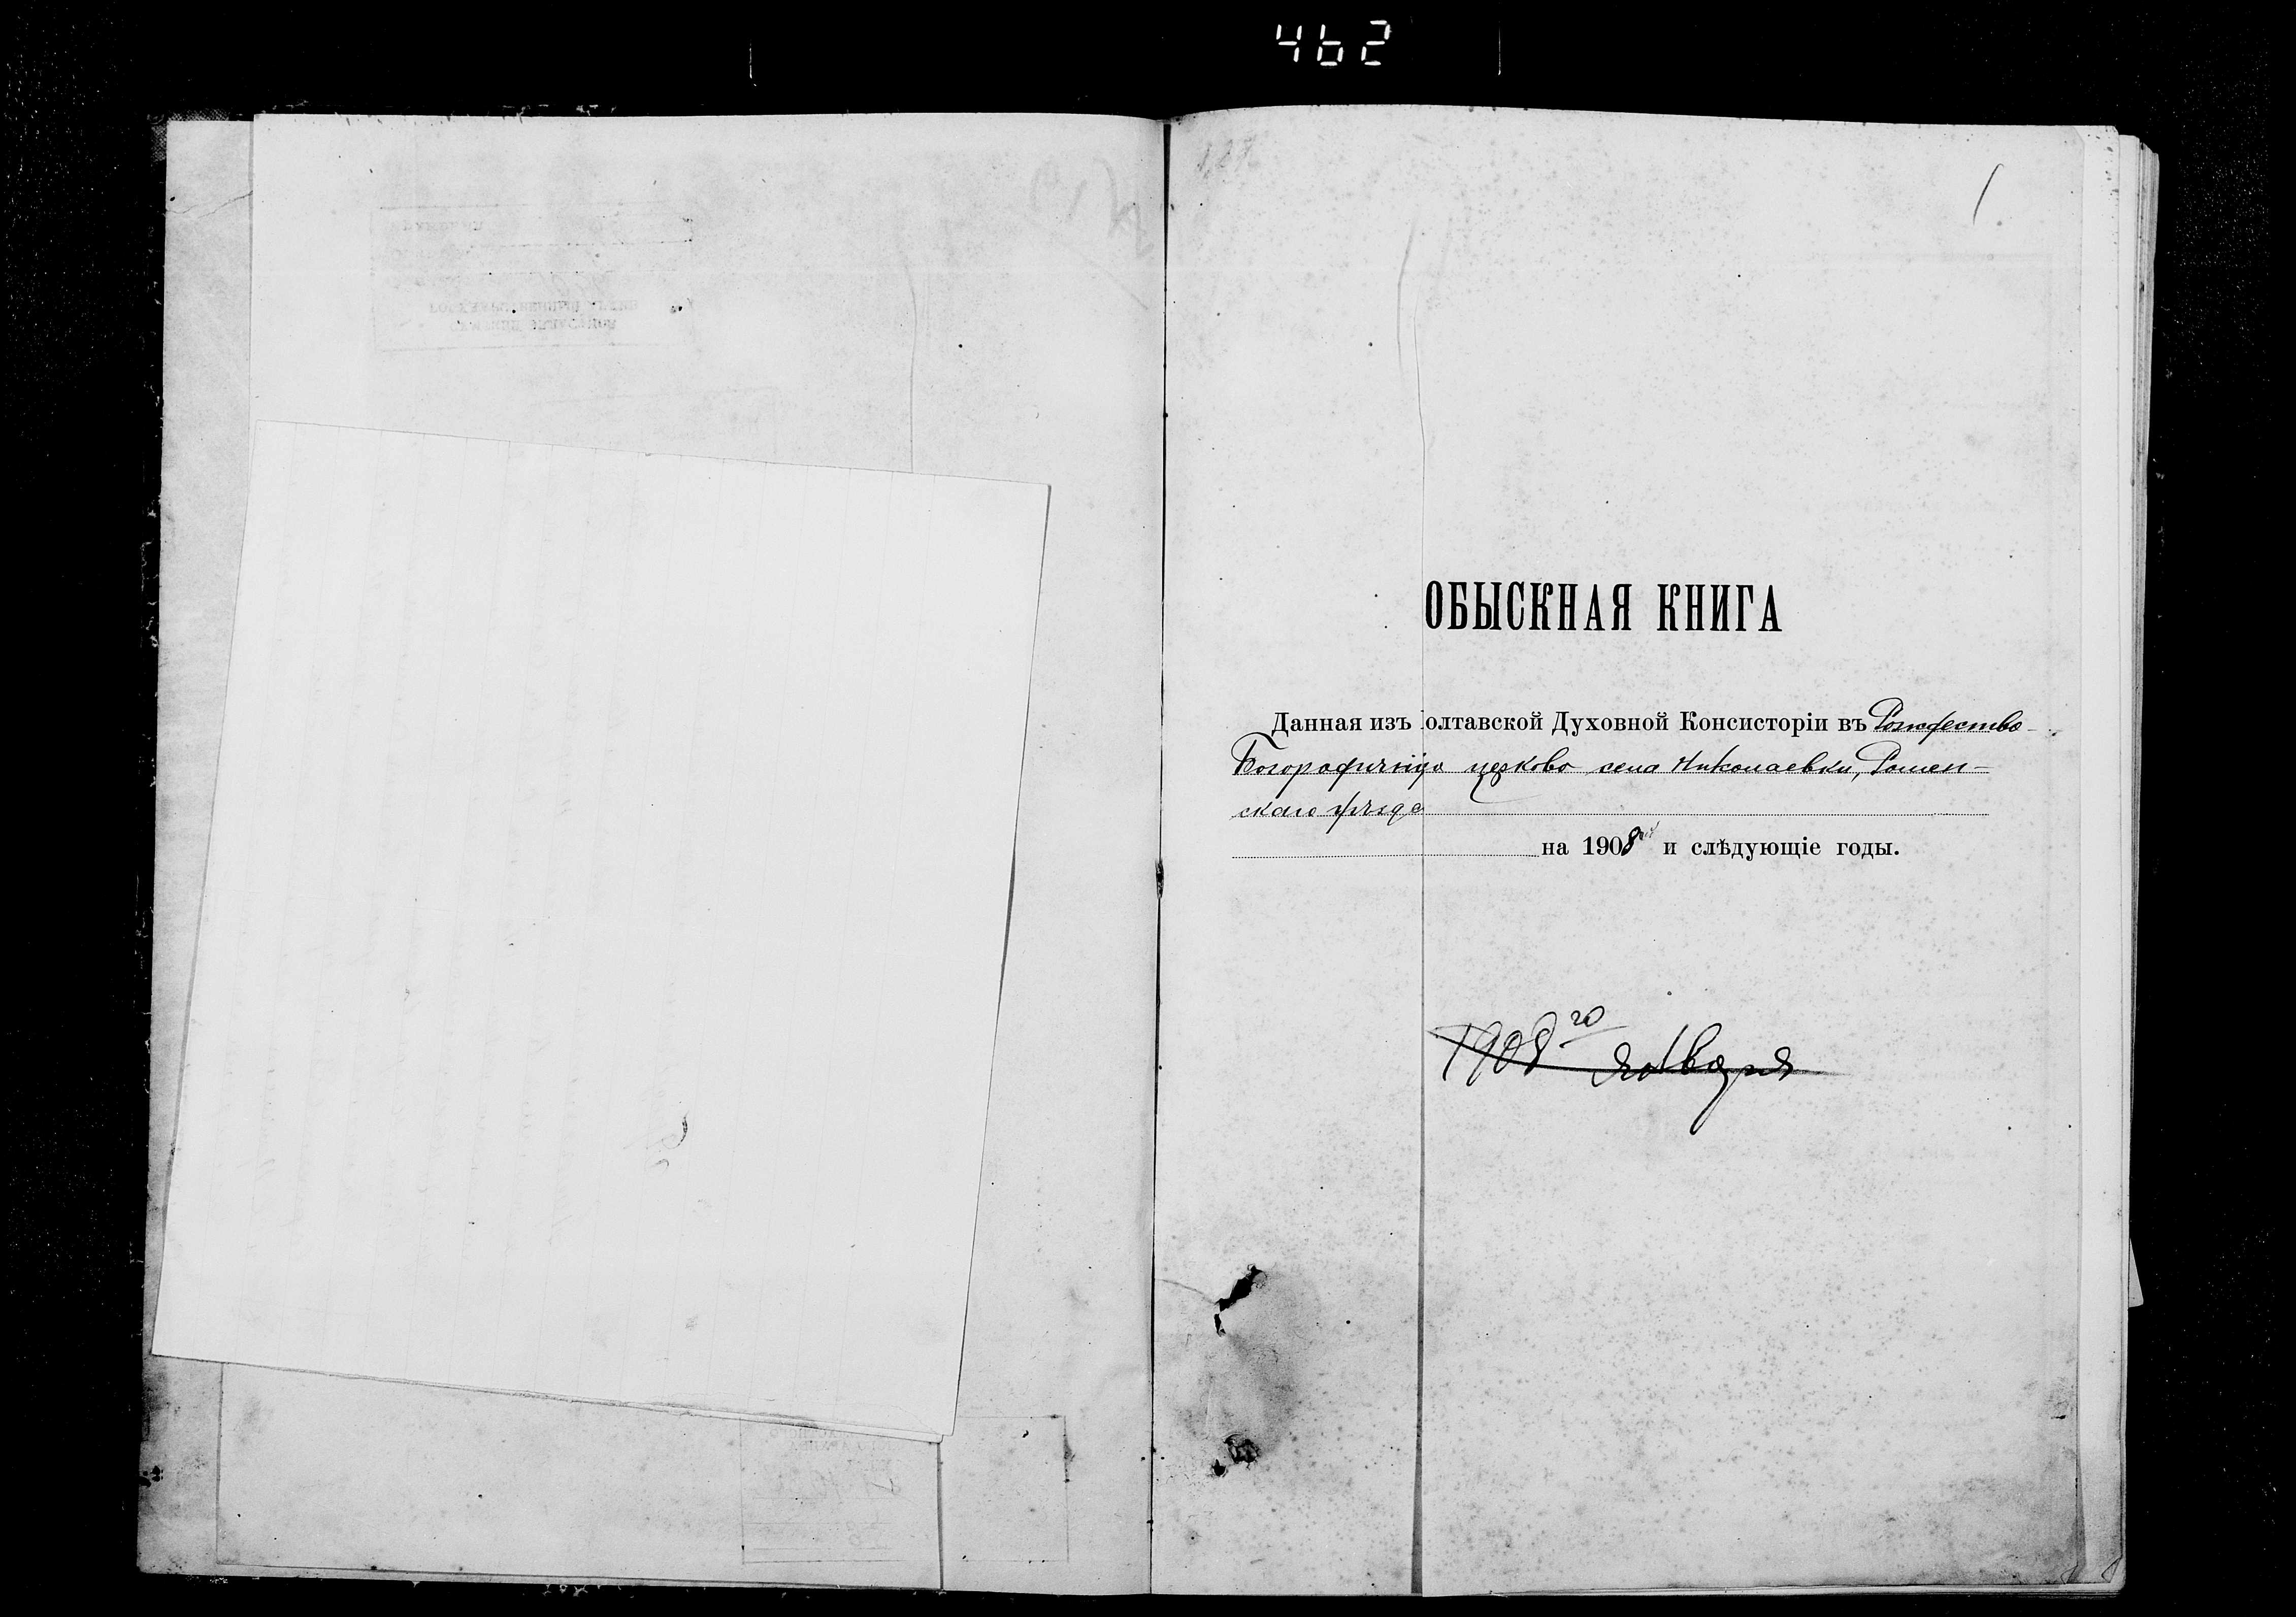 462
1
ОБЫСКНАЯ КНИГА
Данная изъ Полтавской Духовной Консисторіи въ Рождество-
Богородичную церковь села Николаевки, Ромен-
скаго уѣзда
на 1908 и слѣдующіе годы.
1908 го Января